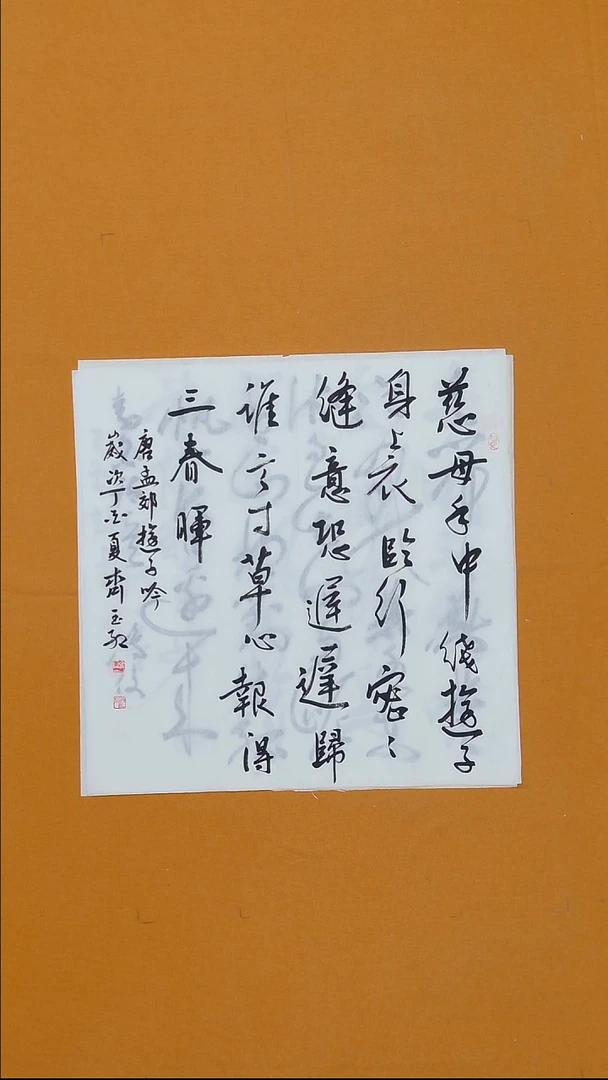 慈母手中綫遊子
身上衣臨行密〻
縫意恐遲遲歸
誰言寸草心報得
三春暉
唐孟郊遊子吟
歲次丁酉夏齊玉